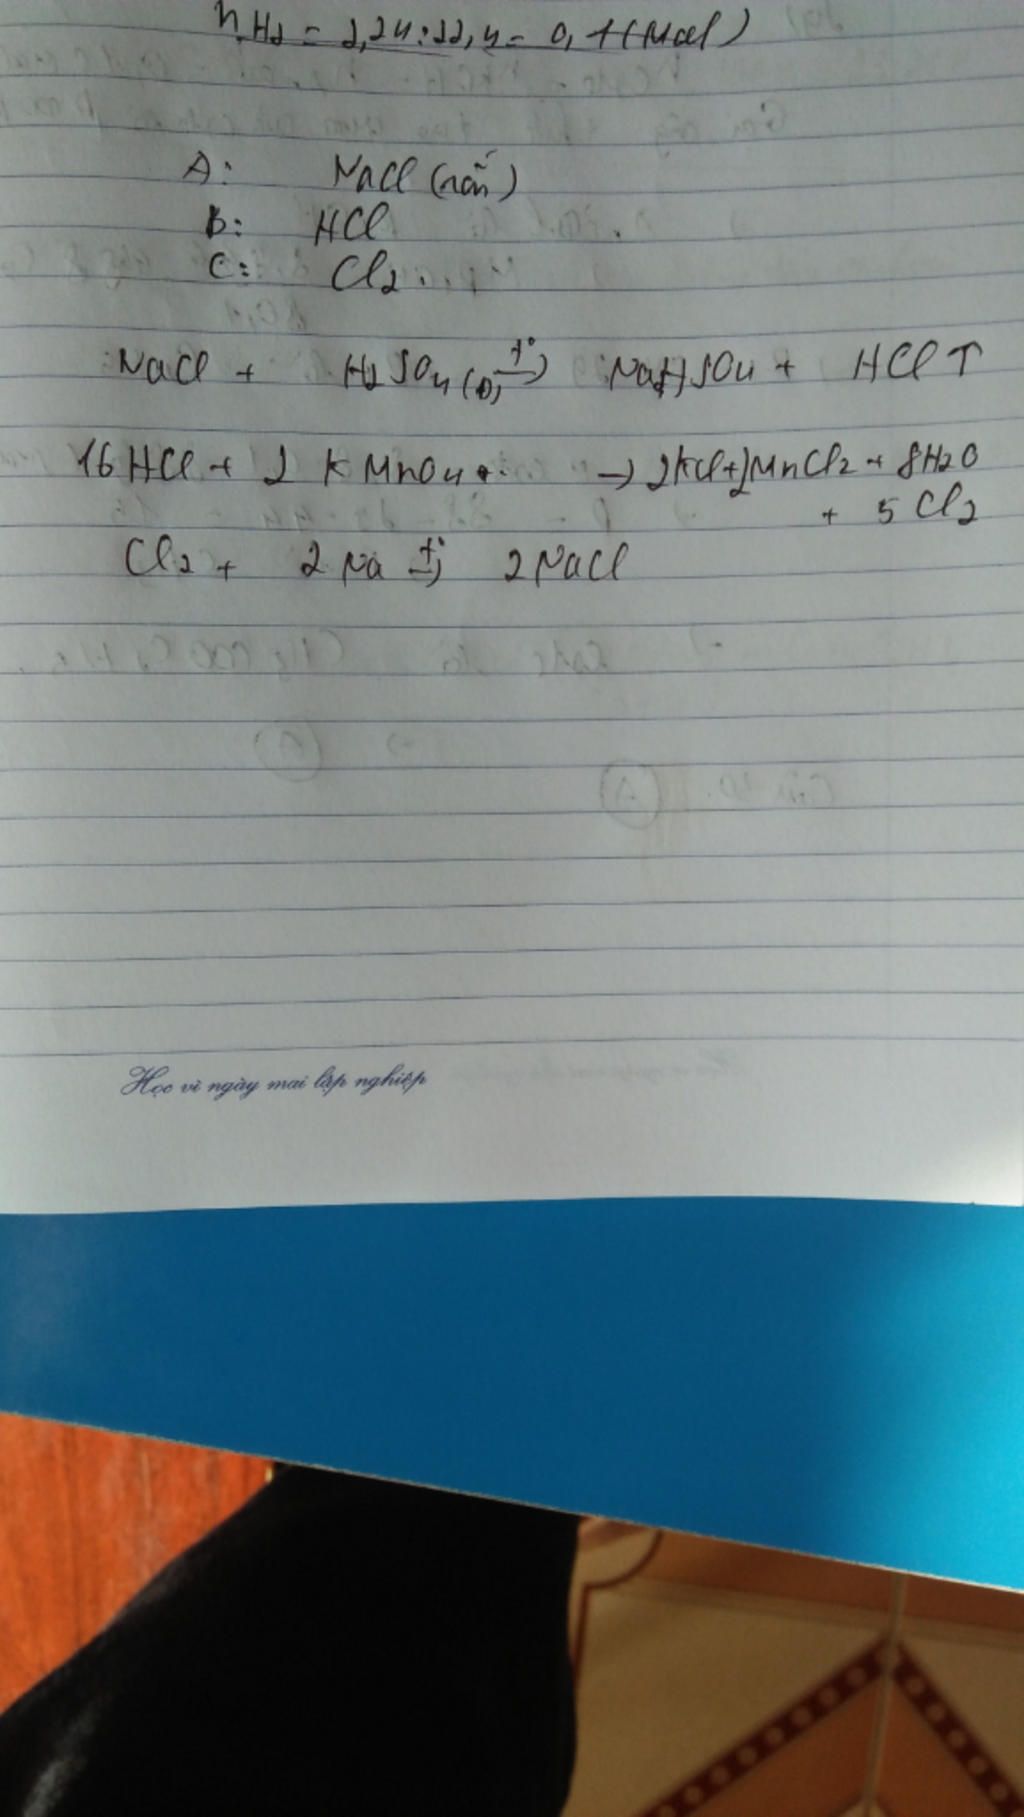 nH2 = 2,24:22,4 = 0,1(Mol)
A: NaCl (rắn)
B: HCl
C: Cl2
NaCl + H2SO4(đ) t°→ NaHSO4 + HCl↑
16HCl + 2KMnO4 → 2KCl+2MnCl2 + 8H2O
+ 5Cl2
Cl2 + 2Na t°→ 2NaCl
Học vì ngày mai lập nghiệp